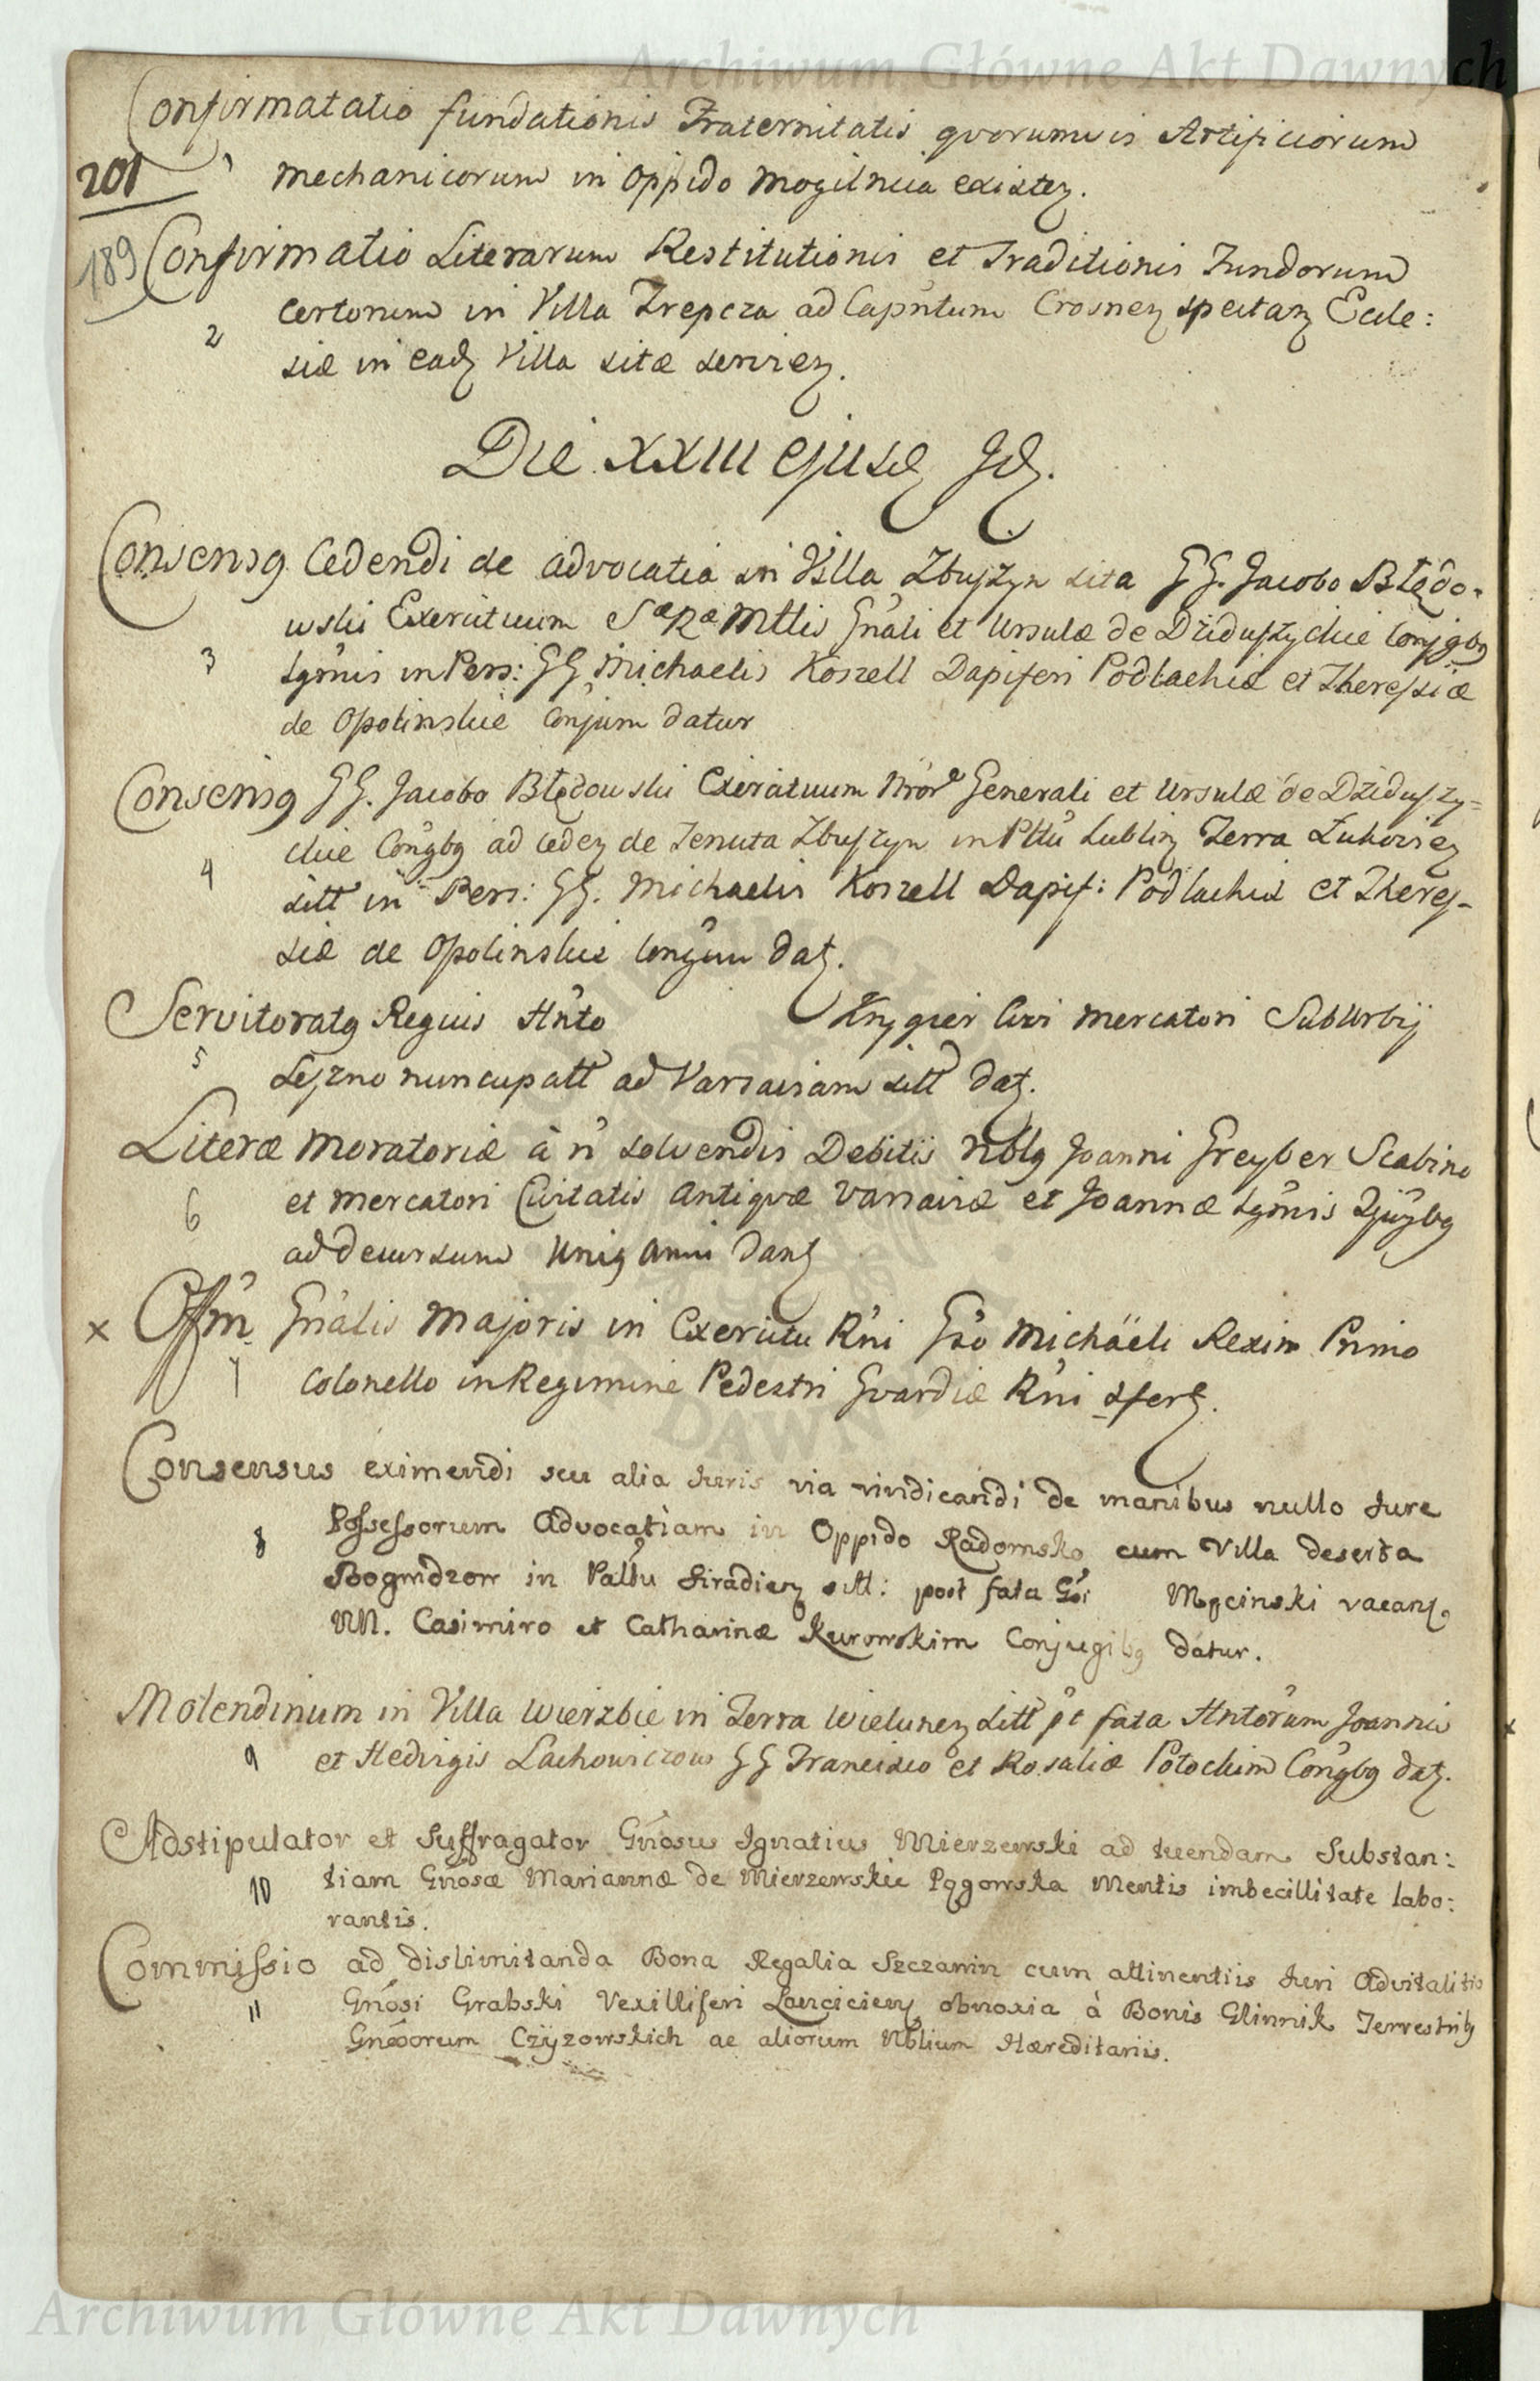 Archiwum Główne Akt Dawnych
Confirmatatio fundationis Fraternitatis quorumvis Artificiorum
201 1 mechanicorum in Oppido Mogilnica existen.
189 Confirmatio Literarum Restitutionis et Traditionis Fundorum
2 certorum in Villa Trepcza ad Capitulum Crosnen spectan Eccle:
siæ in ead Villa sitæ servien.
Die XXIII ejusd Id.
Consensg Cedendi de advocatia in Villa Zbuszyn sita GG. Jacobo Błędo-
wski Exercituum SæRæMttis Gnali et Ursulæ de Dzieduszyckie Conjgbg
3 Lgtmis in Pers: GG Michaelis Koszell Dapiferi Podlachiæ et Theressiæ
de Opolinskie Conjum datur
Consensg GG. Jacobo Błędowski Exercituum Nror Generali et Ursulæ de Dzieduszy=
ckie Congbg ad ceden de Tenuta Zbuszyn in Pttu Lublin Terra Łukovien
4 sitt in Pers: GG. Michaelis Koszell Dapif: Podlachiæ et Theres-
siæ de Opolinskie Congum dat.
Servitoratg Regius Hnto Krygier Civi Mercatori SubUrbij
5 Leszno nuncupatt ad Varsaviam sitt dat.
Literæ moratoriæ à n solvendis Debitis Nblg Joanni Greyber Scabino
6 et mercatori Civitatis Antiquæ Varsaviæ et Joannæ Lgtmis Cjugbg
ad decursum Unig Anni dant
x Offm Gnalis Majoris in Exercitu Rni Gso Michäeli Rexin Primo
7 Colonello in Regimine Pedestri Gvardiæ Rni sfert.
Consensus eximendi seu alia Iuris via vindicandi de manibus nullo Iure
8 Possessorum Advocatiam in Oppido Radomsko cum Villa deserta
in Pallu Siradien sitt: post fata Gsi Męcinski vacant.
NN. Casimiro et Catharinæ Kurowskim Conjugibg datur.
Molendinum in Villa Wierzbie in Terra Wielunen sitt pt fata Hntorum Joannis
9 et Hedvigis Lachowiczow GG Francisco et Rosaliæ Potockim Congbg dat.
Adstipulator et Suffragator Gnosus Ignatius Mierzewski ad tuendam Substan:
10 tiam Gnosæ Mariannæ de Mierzewskie Pągowska Mentis imbecillitate labo:
rantis.
Commissio ad dislimitanda Bona Regalia Szczawin cum attinentiis Iuri Advitalitio
11 Gnosi Grabski Vexilliferi Lancicien obnoxia à Bonis Glinnik Terrestribg
Gnosorum Czyzowskich ac aliorum Nblium Hæreditariis.
Archiwum Główne Akt Dawnych